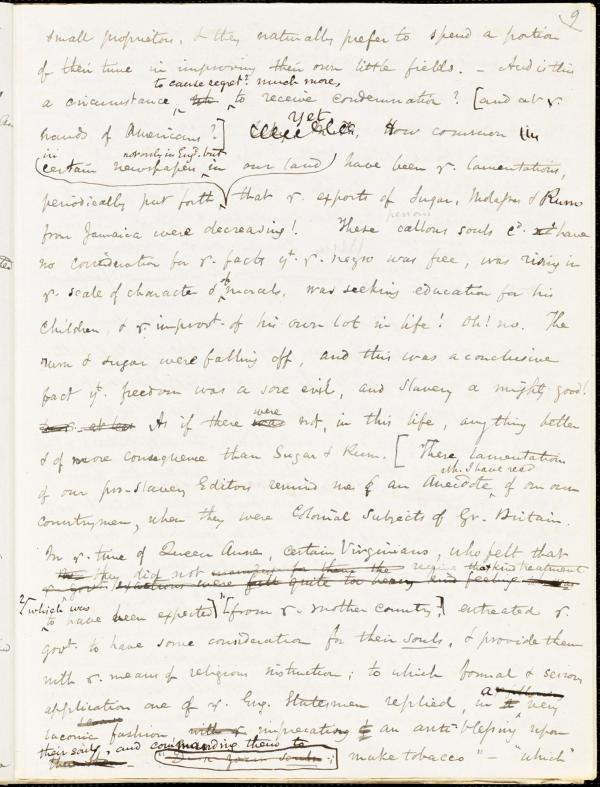 9
small proprietors, & they naturally prefer to spend a portion
of their time in improving their own little fields. – And is this
to cause regret? much more,
a circumstance, to receive condemnation? [and at yͤ
hands of Americans?] Yet How common
in not only in Eng. but
certain newspapers, in our land have been yͤ lamentations,
periodically put forth, that yͤ exports of Sugar, Molasses & Rum
from Jamaica were decreasing! These callous souls cᵈ have
persons
no consideration for yͤ facts yᵗ yͤ negro was free, was rising in
yͤ scale of character & morals, was seeking education for his
children, & yͤ improvᵗ of his own lot in life! Oh! no. The
rum & sugar were falling off, and this was a conclusive
fact yᵗ freedom was a sore evil, and slavery a mighty good!
were
As if there was not, in this life, anything better
& of more consequence than Sugar & Rum. [These lamentations
wh. I have read
of our pro-slavery Editors remind me of an Anecdote, of our own
countrymen, when they were Colonial Subjects of Gr. Britain.
In yͤ time of Queen Anne, certain Virginians, who felt that
they did not receive that kind treatment
yͤ govt exactions were felt quite too heavy kind feeling
which was
to have been expected] [from yͤ mother country,] entreated yͤ
govt. to have some consideration for their souls, & provide them
with yͤ means of religious instruction; to which formal & serious
application one of yͤ Eng. Statesmen replied, in a very
laconic fashion imprecating an anti-blessing upon
their souls, and commanding them to
"D–n your souls; make tobacco" – "which"